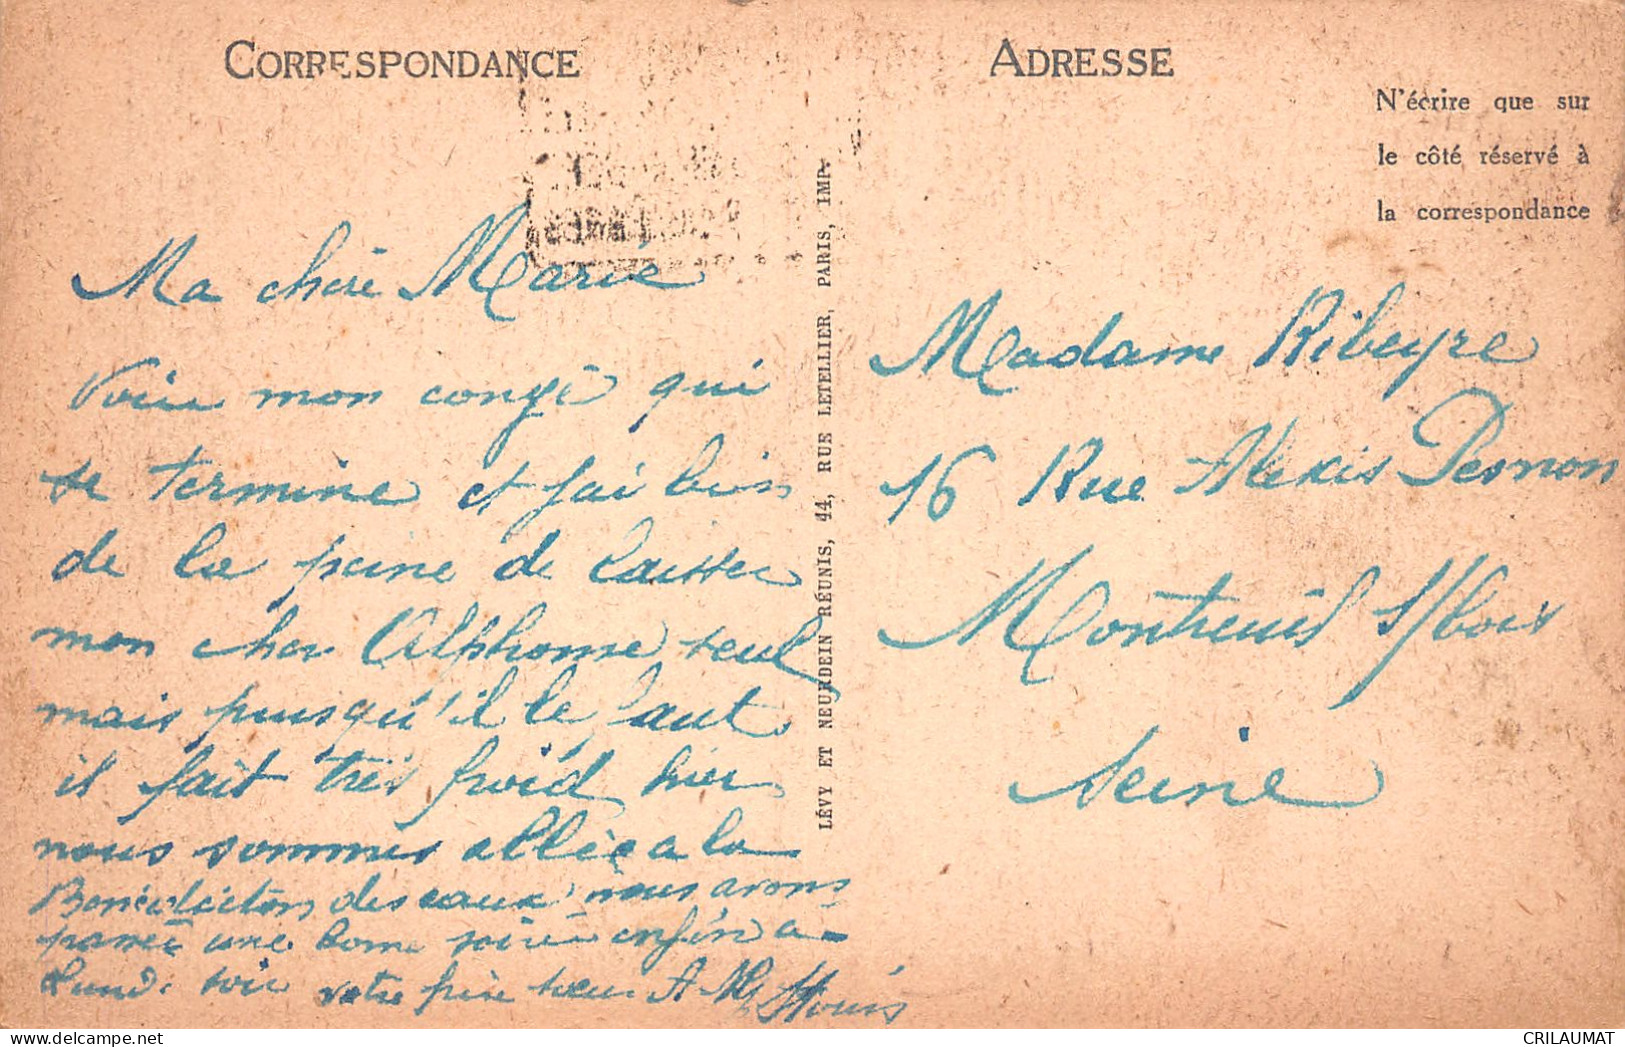 CORRESPONDANCE
Ma chère Marie
Voici mon congé qui
se termine et j'ai bien
de la peine de laisser
mon cher Alphonse seul
mais puisqu'il le faut
il fait très froid hier
nous sommes allée a la
Benédiction des eaux nous avons
passée une bonne soirée enfin a
Lundi soir votre frère soeur A M
LÉVY ET NEURDEIN RÉUNIS, 44, RUE LETELLIER, PARIS, IMP.
ADRESSE
N'écrire que sur
le côté réservé à
la correspondance
Madame Ribeyre
16 Rue Alexis Pesnon
Montreuil s/bois
Seine
CRILAUMAT